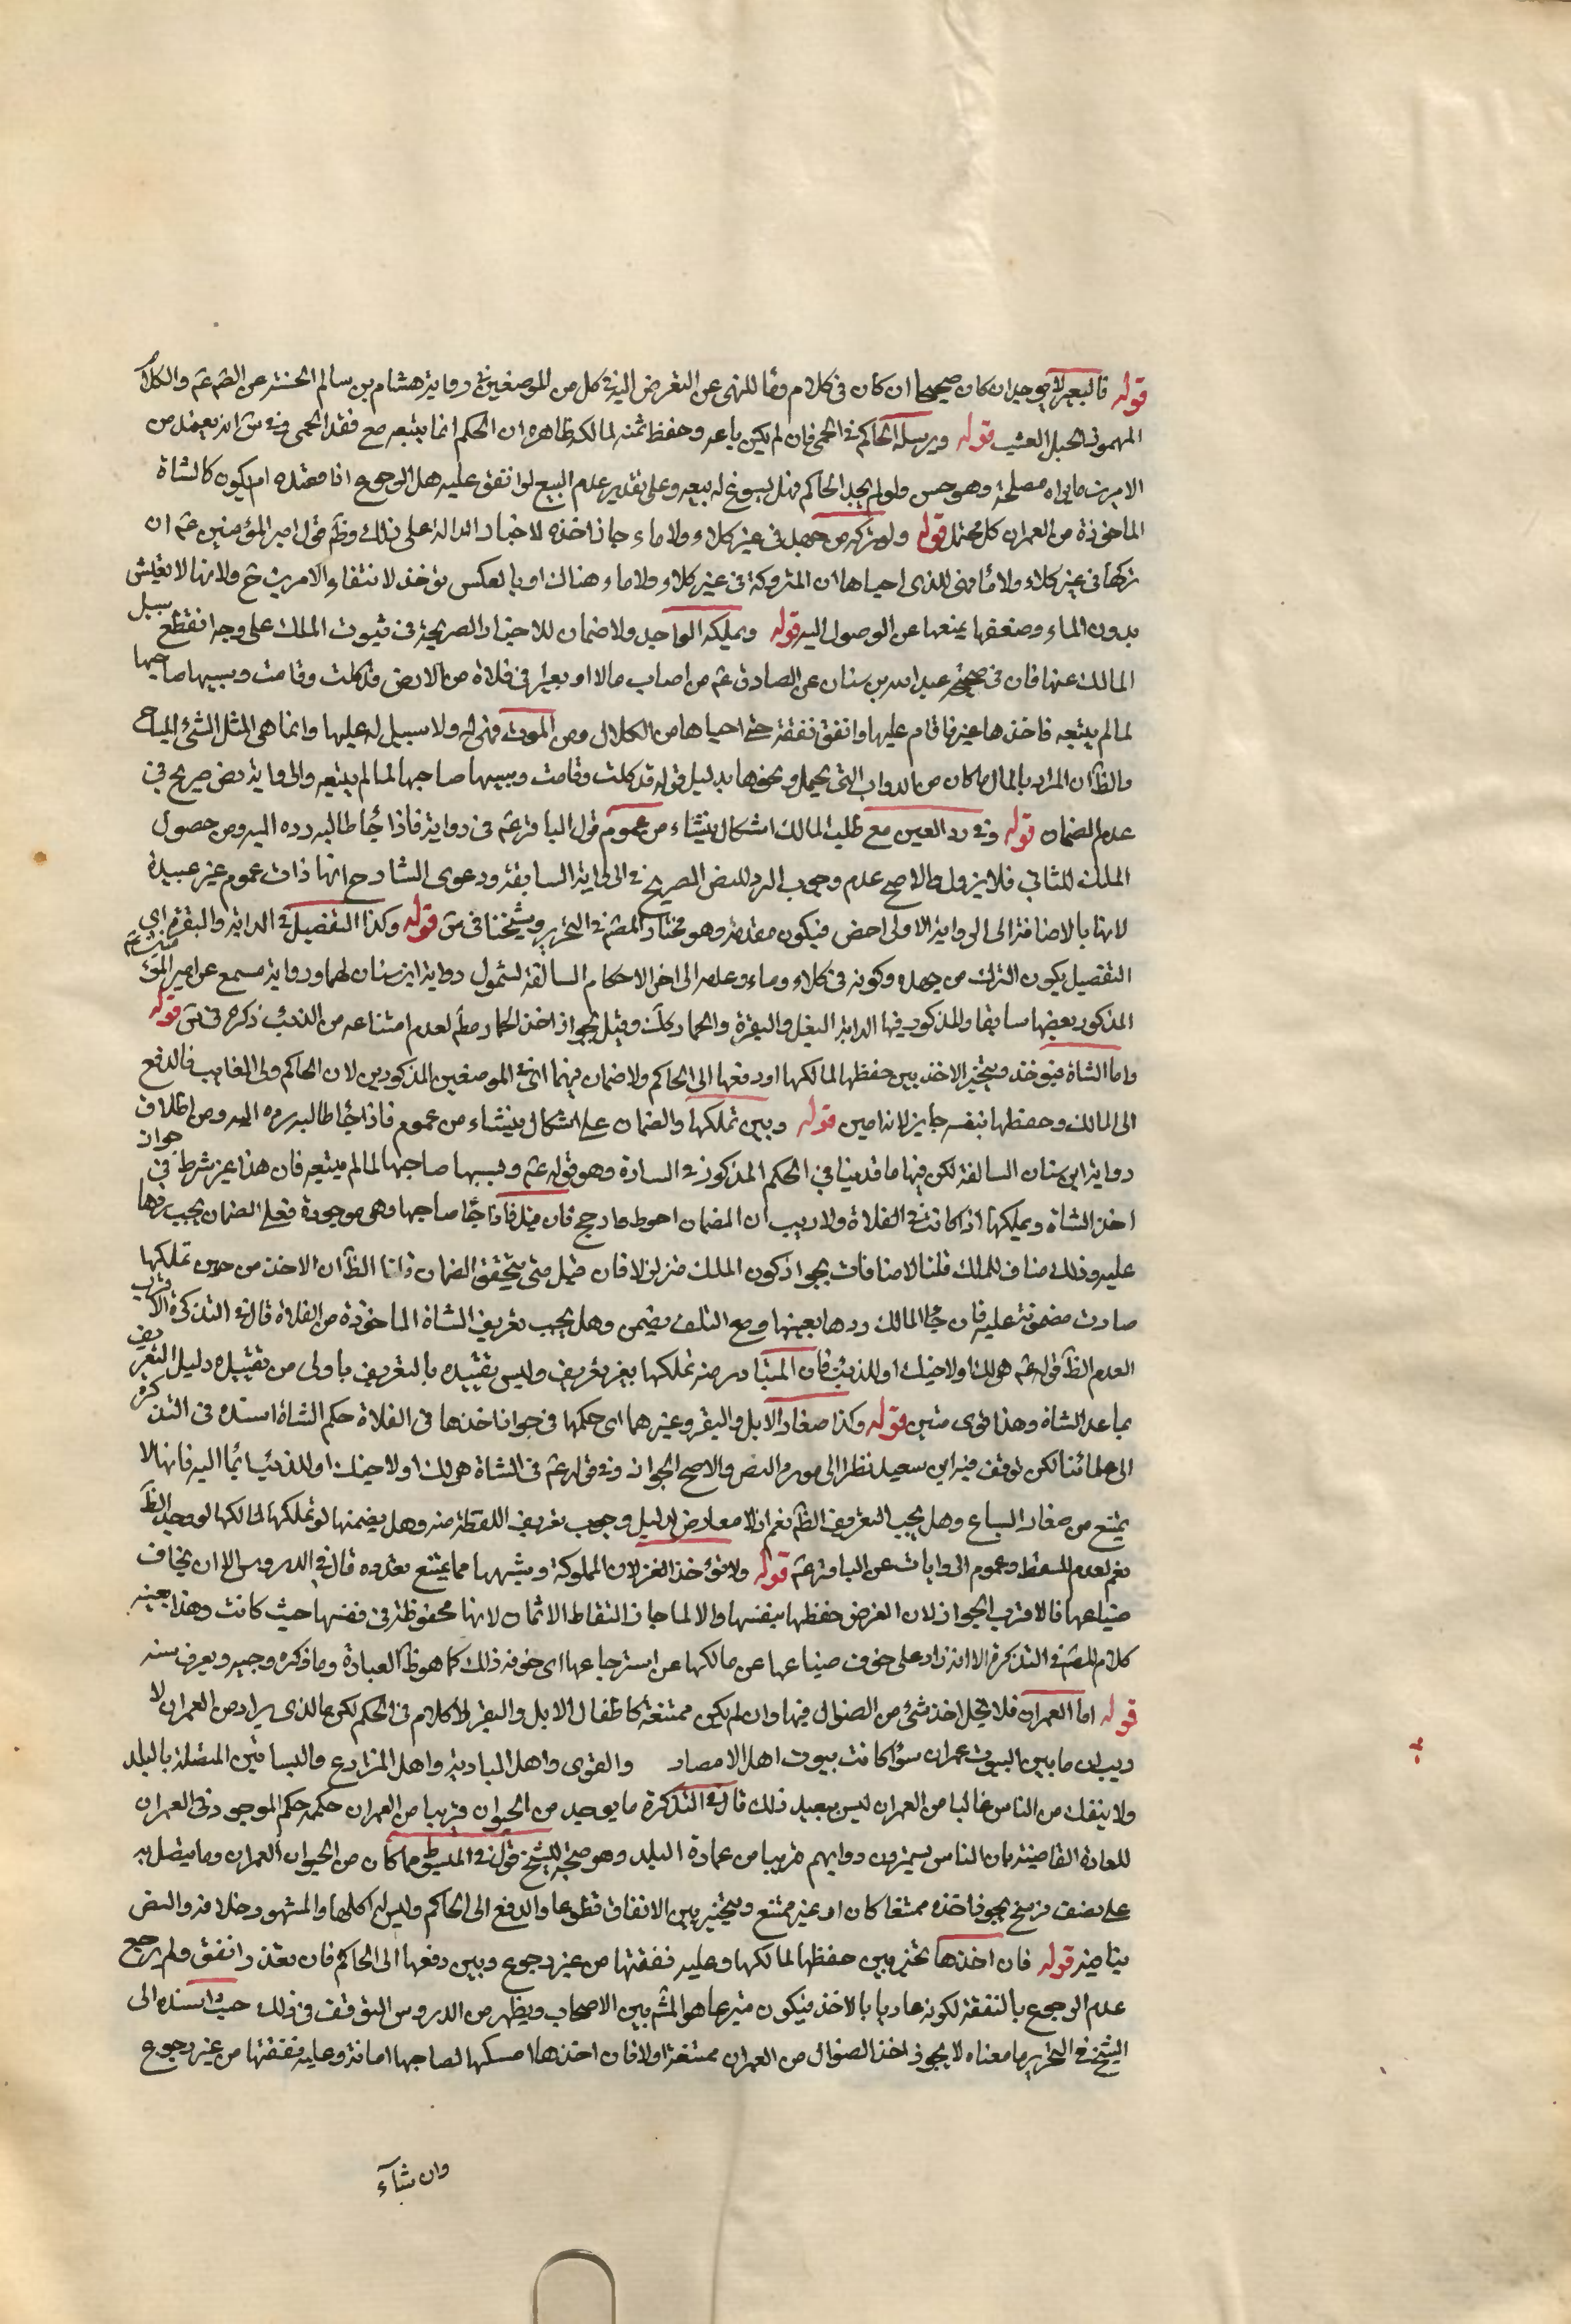 قوله فالبعير لا يوخذ ان كان صحيحا او كان في كلاء وماء للنهي عن التعرض اليه في كل من الموضعين في رواية هشام بن سالم الحسنة عن الصّ عم والكلأ
المهموز الحبل العشب قوله ويرسله الحاكم في الحمى فان لم يكن باعه وحفظ ثمنه لمالكه ظاهره ان الحكم انما يبيعه مع فقد الحمى وفي س انه يفعل من
الامرين ما يراه مصلحة وهو حسن ولو لم يجد الحاكم فهل يسوغ له بيعه وعلى تقدير عدم البيع لو انفق عليه هل الرجوع اذا قصده ام يكون كالشاة
الماخوذة من العمران كل محتمل قوله ولو تركه من جهد في غير كلاء ولا ماء جاز اخذه للاخبار الدالة على ذلك وظم قول امير المؤمنين عم ان
تركها في غير كلاء ولا ماء فهي للذي احياها ان المتروكة في غير كلاء ولا ماء هناك او بالعكس يؤخذ لانتفاء الامرين ح ولانها لا تعيش
بدون الماء وضعفها يمنعها عن الوصول اليه قوله ويملكه الواجد ولا ضمان للاخبار الصريحة في ثبوت الملك على وجه انقطع سبيل
المالك عنها فان في صحيحة عبد الله بن سنان عن الصادق عم من اصاب مالا او بعيرا في فلاة من الارض قد كلت وقامت وسيبها صاحبها
لما لم يتبعه فاخذها غيره فاقام عليها وانفق نفقة حتى احياها من الكلال ومن الموت فهي له ولا سبيل له عليها وانما هي المثل الشئ المباح
والظ ان المراد بالمال ما كان من الدواب التي تحمل ونحوها بدليل قوله قد كلت وقامت وسيبها صاحبها لما لم يتبعه والرواية نص صريح في
عدم الضمان قوله وفي رد العين مع طلب المالك اشكال ينشاء من عموم قول الباقر عم في رواية فاذا جاء طالبه رده اليه ومن حصول
الملك للثاني فلا يزول والاصح عدم وجوب الرد للنص الصريح في الرواية السابقة ودعوى الشارح انها ذات عموم غير جيدة
لانها بالاضافة الى الرواية الاولى اخص فيكون مقدمة وهو مختار المصّ في التحرير وشيخنا في س قوله وكذا التفصيل في الدابة والبقرة اي
التفصيل بكون الترك من جهد وكونه في كلاء وماء وعدمه الى اخر الاحكام السالفة لشمول رواية ابن سنان لهما ورواية مسمع عن امير المؤمنين عم
المذكور بعضها سابقا والمذكور فيها الدابة البغل والبقرة والحمار كك وقيل بجواز اخذ الحمار مطم لعدم امتناعه من الذئب ذكره في س قوله
واما الشاة فيؤخذ ويتخير الاخذ بين حفظها لمالكها او دفعها الى الحاكم ولا ضمان فيهما اي في الموضعين المذكورين لان الحاكم ولى الغايب فالدفع
الى المالك وحفظها بنفسه جايز لانه امين قوله وبين تملكها والضمان على اشكال ينشاء من عموم فاذا جاء طالبه رده اليه ومن اطلاق
رواية ابن سنان السالفة لكن فيها ما قد ينافي الحكم المذكور في الساره وهو قوله عم وسيبها صاحبها لما لم يتبعه فان هذا غير شرط في جواز
اخذ الشاة ويملكها اذا كانت في الفلاة ولا ريب ان الضمان احوط وارجح فان قيل فاذا جاء صاحبها وهي موجودة فعلى الضمان يجب ردها
عليه وذلك مناف للملك قلنا لا منافات بجواز كون الملك متزلزلا فان قيل متى يتحقق الضمان قلنا الظ ان الاخذ من حين تملكها
صارت مضمونة عليه فان جاء المالك ردها بعينها ومع التلف يضمن وهل يجب تعريف الشاة الماخوذة من الفلاة قال في التذكرة الاقرب
العدم الظ قوله عم هي لك او لاخيك او للذئب فان المتبادر منه تملكها بغير تعريف وليس تقييده بالتعريف باولى من تقييد دليل التعريف
بما عدا الشاة وهذا قوى متين قوله وكذا صغار الابل والبقر وغيرهما اي حكمها في جواز اخذها في الفلاة حكم الشاة اسنده في التذكرة
الى علمائنا لكن توقف فيه ابن سعيد نظرا الى مورد النص والاصح الجواز وفي قوله عم في الشاة هي لك او لاخيك او للذئب ايماء اليه فانها لا
يمتنع من صغار السباع وهل يجب التعريف الظ نعم اذ لا معارض لدليل وجوب تعريف اللقطة منه وهل يضمنها لو تملكها لمالكها لو وجد الظ
نعم لعدم المسقط وعموم الروايات عن الباقر عم قوله ولا تؤخذ الغزلان المملوكة وشبهها مما يمتنع بعدوه قال في الدروس الا ان يخاف
ضياعها فالاقرب الجواز لان الغرض حفظها بنفسها والا لما جاز التقاط الاثمان لانها محفوظة في نفسها حيث كانت وهذا بعينه
كلام المصّ في التذكرة الا انه زاد على خوف ضياعها عن مالكها عن استرجاعها اي خوف ذلك كما هو ظ العبارة وما ذكره وجيه ويعرف سنة
قوله اما العمران فلا يحل اخذ شئ من الضوال فيها وان لم يكن ممتنعة كاطفال الابل والبقر لا كلام في الحكم لكن ما الذي يراد من العمران لا
ريب ان ما بين البيوت عمران سواء كانت بيوت اهل الامصار والقرى واهل البادية واهل المزارع والبساتين المتصلة بالبلد
ولا ينفك من الناس غالبا من العمران ليس ببعيد ذلك قال في التذكرة ما يوجد من الحيوان قريبا من العمران حكمه حكم الموجود في العمران
للعادة القاضية بان الناس يسيرون دوابهم قريبا من عمارة البلد وهو متجه للشيخ قول في المبسوط ما كان من الحيوان العمران وما يتصل به
على نصف فرسخ يجوز اخذه ممتنعا كان او غير ممتنع ويتخير بين الانفاق تطوعا والدفع الى الحاكم وليس له اكلها والمشهور خلافه والنص
ينافيه قوله فان اخذها تخير بين حفظها لمالكها وعليه نفقتها من غير رجوع وبين دفعها الى الحاكم فان تعذر انفق ولم يرجع
عدم الرجوع بالنفقة لكونه عاديا بالاخذ فيكون متبرعا هو المشّ بين الاصحاب ويظهر من الدروس التوقف في ذلك حيث اسنده الى
الشيخ في التحرير ما معناه لا يجوز اخذ الضوال من العمران ممتنعة او لا فان اخذها امسكها لصاحبها امانة وعليه نفقتها من غير رجوع
وان شآء